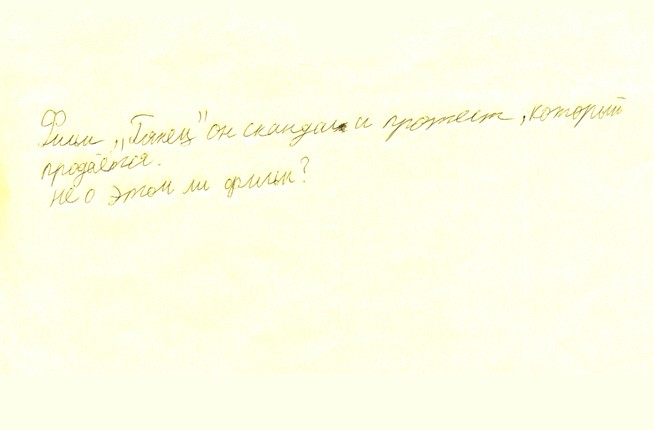 Фильм „Танец" он скандал и протест, который
продаётся.
не о этом ли фильм?